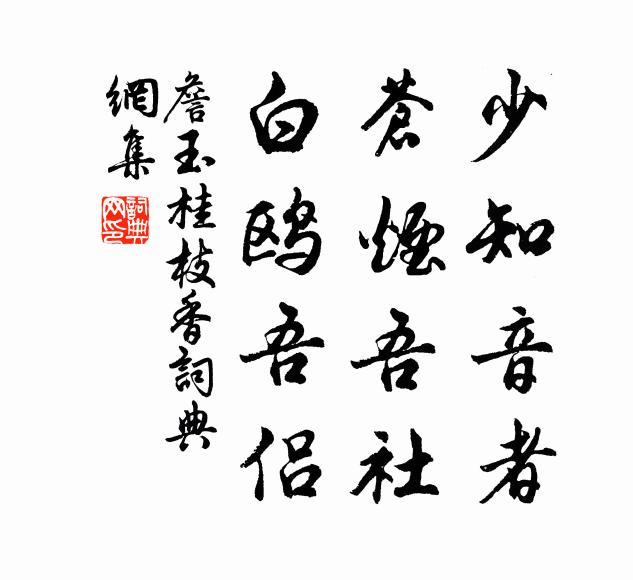 少知音者
蒼煙吾社
白鷗吾侶
詹玉桂枝香詞典
網集
詞典
网印